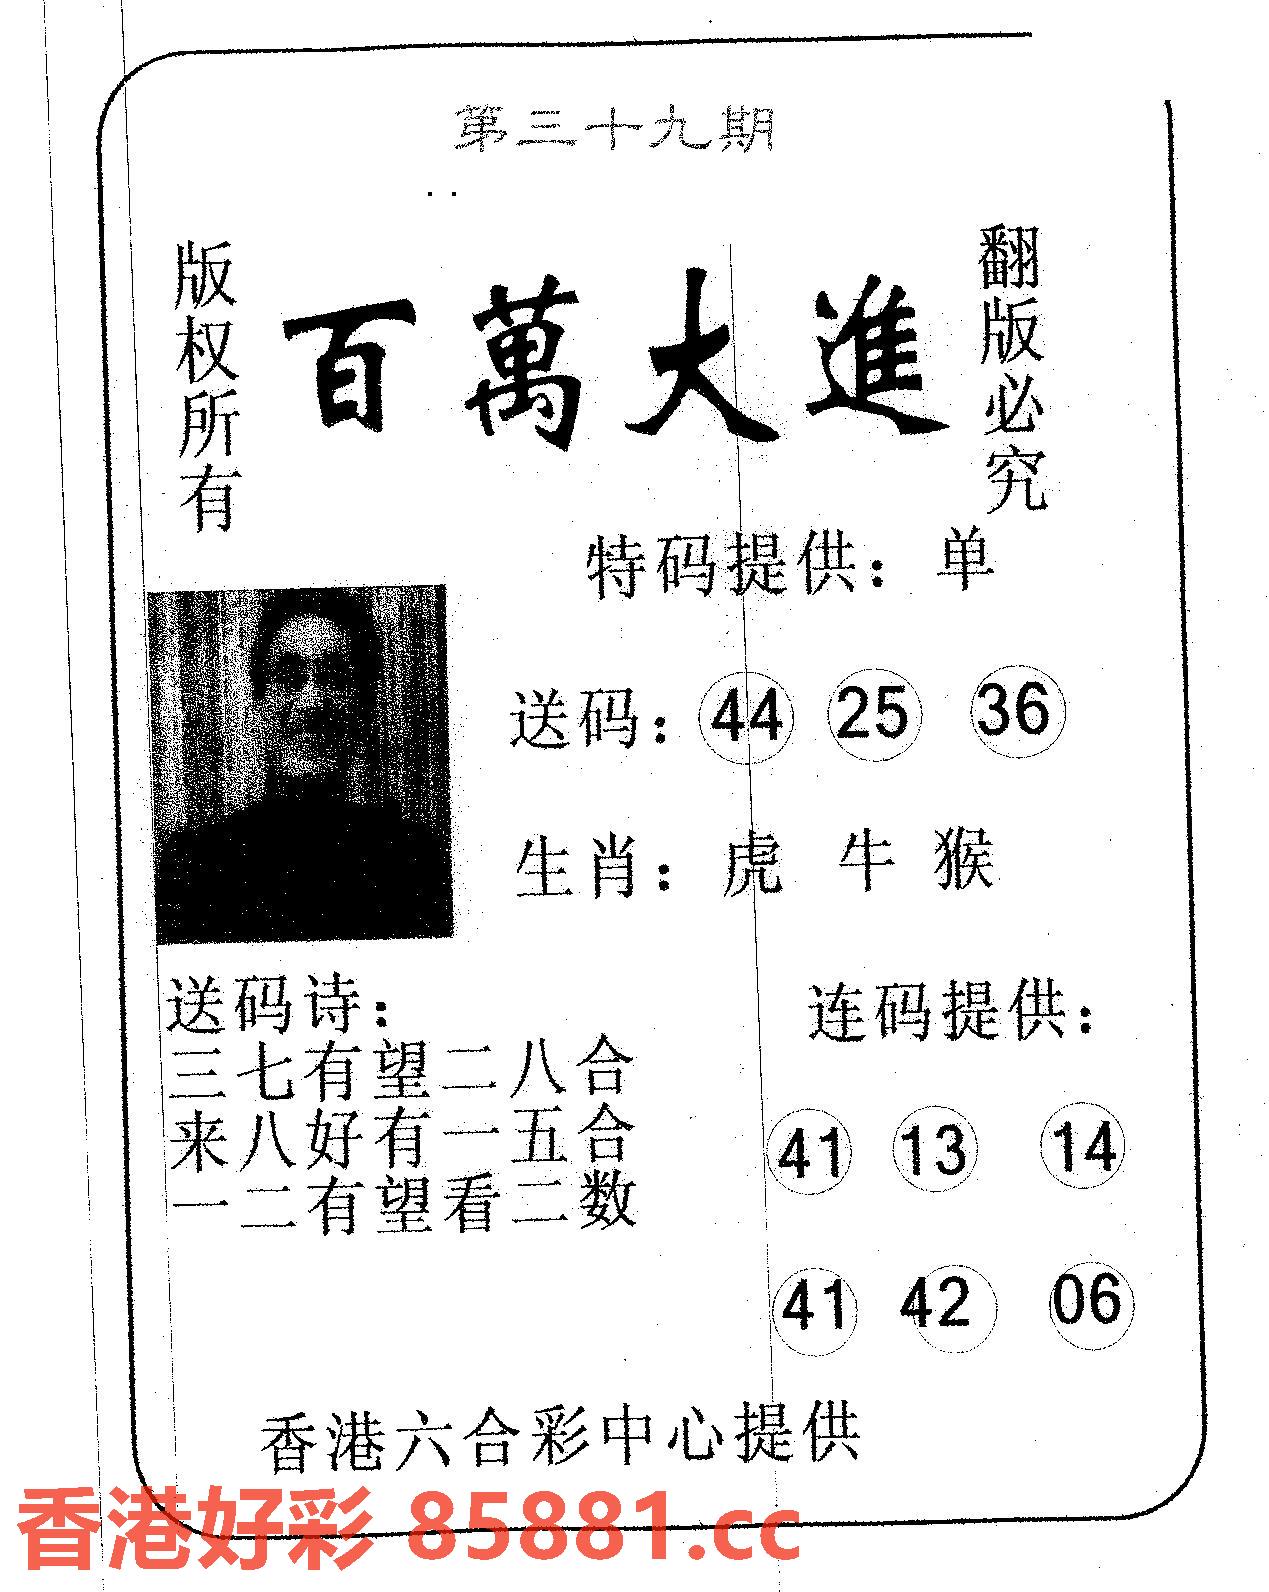 第三十九期
版权所有
百萬大進
翻版必究
特码提供：单
送码：44 25 36
生肖：虎 牛 猴
送码诗：
三七有望二八合
来八好有一五合
一二有望看二数
连码提供：
41 13 14
41 42 06
香港六合彩中心提供
香港好彩 85881.cc